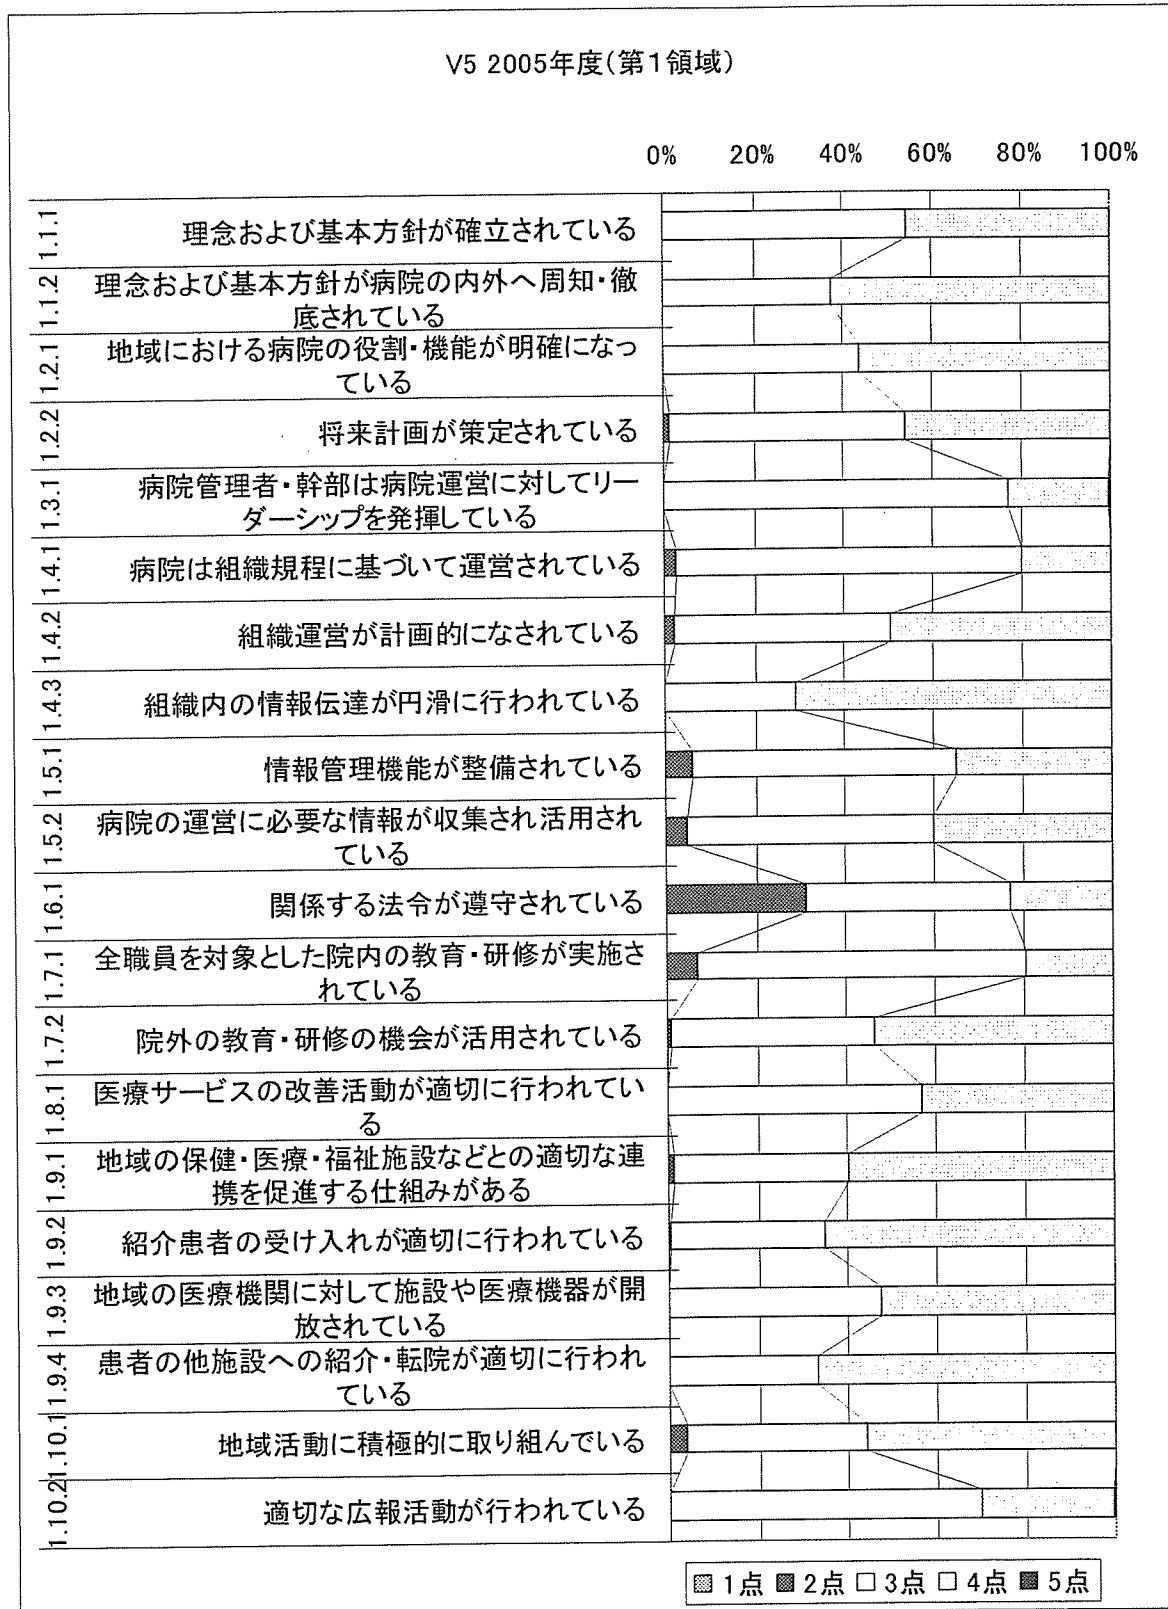 V5 2005年度(第1領域)
0% 20% 40% 60% 80% 100%
1.1.1 理念および基本方針が確立されている
1.1.2 理念および基本方針が病院の内外へ周知・徹
底されている
1.2.1 地域における病院の役割・機能が明確になっ
ている
1.2.2 将来計画が策定されている
1.3.1 病院管理者・幹部は病院運営に対してリー
ダーシップを発揮している
1.4.1 病院は組織規程に基づいて運営されている
1.4.2 組織運営が計画的になされている
1.4.3 組織内の情報伝達が円滑に行われている
1.5.1 情報管理機能が整備されている
1.5.2 病院の運営に必要な情報が収集され活用され
ている
1.6.1 関係する法令が遵守されている
1.7.1 全職員を対象とした院内の教育・研修が実施さ
れている
1.7.2 院外の教育・研修の機会が活用されている
1.8.1 医療サービスの改善活動が適切に行われてい
る
1.9.1 地域の保健・医療・福祉施設などとの適切な連
携を促進する仕組みがある
1.9.2 紹介患者の受け入れが適切に行われている
1.9.3 地域の医療機関に対して施設や医療機器が開
放されている
1.9.4 患者の他施設への紹介・転院が適切に行われ
ている
1.10.1 地域活動に積極的に取り組んでいる
1.10.2 適切な広報活動が行われている
1点 2点 3点 4点 5点